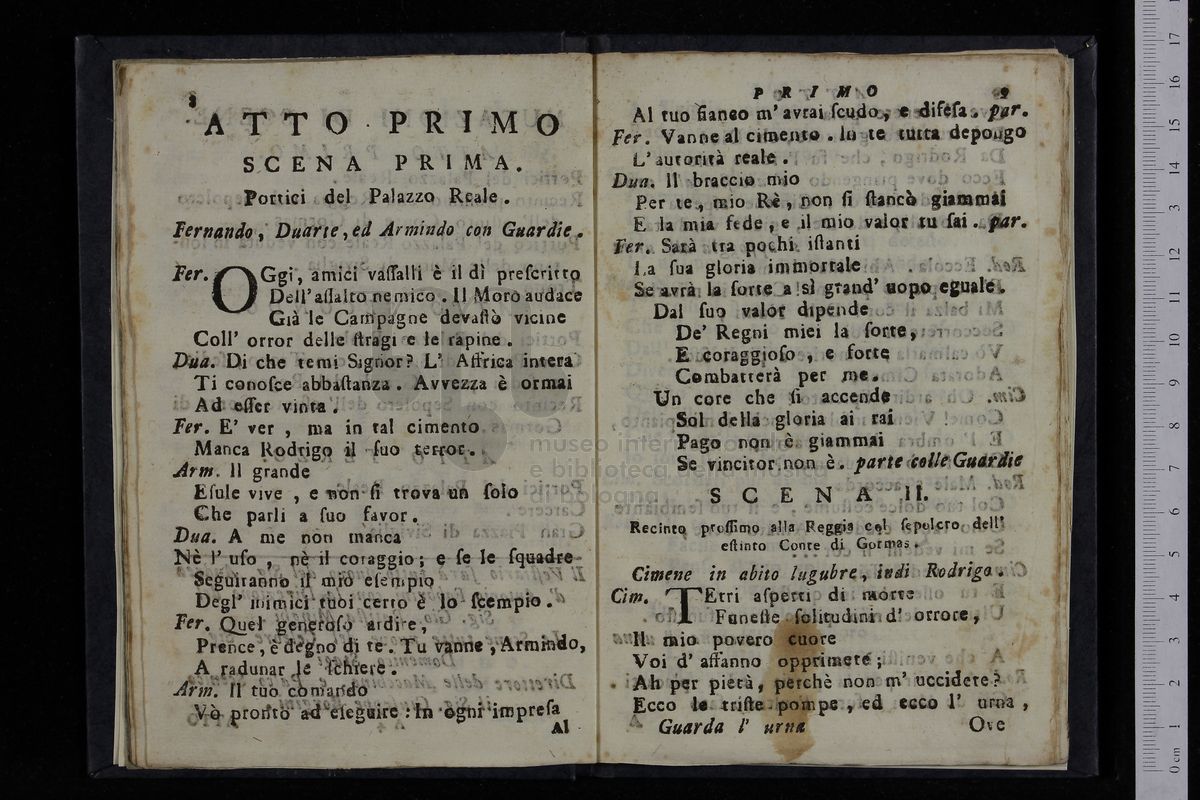 8
ATTO PRIMO
SCENA PRIMA.
Portici del Palazzo Reale.
Fernando, Duarte, ed Armindo con Guardie.
Fer. OGgi, amici vaſſalli è il dì preſcritto
Dell' aſſalto nemico. Il Moro audace
Già le Campagne devaſtò vicine
Coll' orror delle ſtragi e le rapine.
Dua. Di che temi Signor? L' Affrica intera
Ti conoſce abbaſtanza. Avvezza è ormai
Ad eſſer vinta.
Fer. E' ver, ma in tal cimento
Manca Rodrigo il ſuo terror.
Arm. Il grande
Eſule vive, e non ſi trova un ſolo
Che parli a ſuo favor.
Dua. A me non manca
Nè l' uſo, nè il coraggio; e ſe le ſquadre
Seguiranno il mio eſempio
Degl' inimici tuoi certo è lo ſcempio.
Fer. Quel generoſo ardire,
Prence, è degno di te. Tu vanne, Armindo,
A radunar le ſchiere.
Arm. Il tuo comando
Vò pronto ad eſeguire: In ogni impreſa
Al
PRIMO 9
Al tuo fianco m' avrai ſcudo, e difeſa. par.
Fer. Vanne al cimento. In te tutta depongo
L' autorità reale.
Dua. Il braccio mio
Per te, mio Rè, non ſi ſtancò giammai
E la mia fede, e il mio valor tu ſai. par.
Fer. Sarà tra pochi iſtanti
La ſua gloria immortale
Se avrà la ſorte a sì grand' uopo eguale.
Dal ſuo valor dipende
De' Regni miei la ſorte,
E coraggioſo, e forte
Combatterà per me.
Un core che ſi accende
Sol della gloria ai rai
Pago non è giammai
Se vincitor non è. parte colle Guardie
SCENA II.
Recinto proſſimo alla Reggia col ſepolcro dell'
eſtinto Conte di Gormas.
Cimene in abito lugubre, indi Rodrigo.
Cim. TEtri aſpetti di morte
Funeſte ſolitudini d' orrore,
Il mio povero cuore
Voi d' affanno opprimete;
Ah per pietà, perchè non m' uccidete?
Ecco le triſte pompe, ed ecco l' urna,
Guarda l' urna Ove
museo internazionale
e biblioteca della musica
di bologna
0 cm 1 2 3 4 5 6 7 8 9 10 11 12 13 14 15 16 17